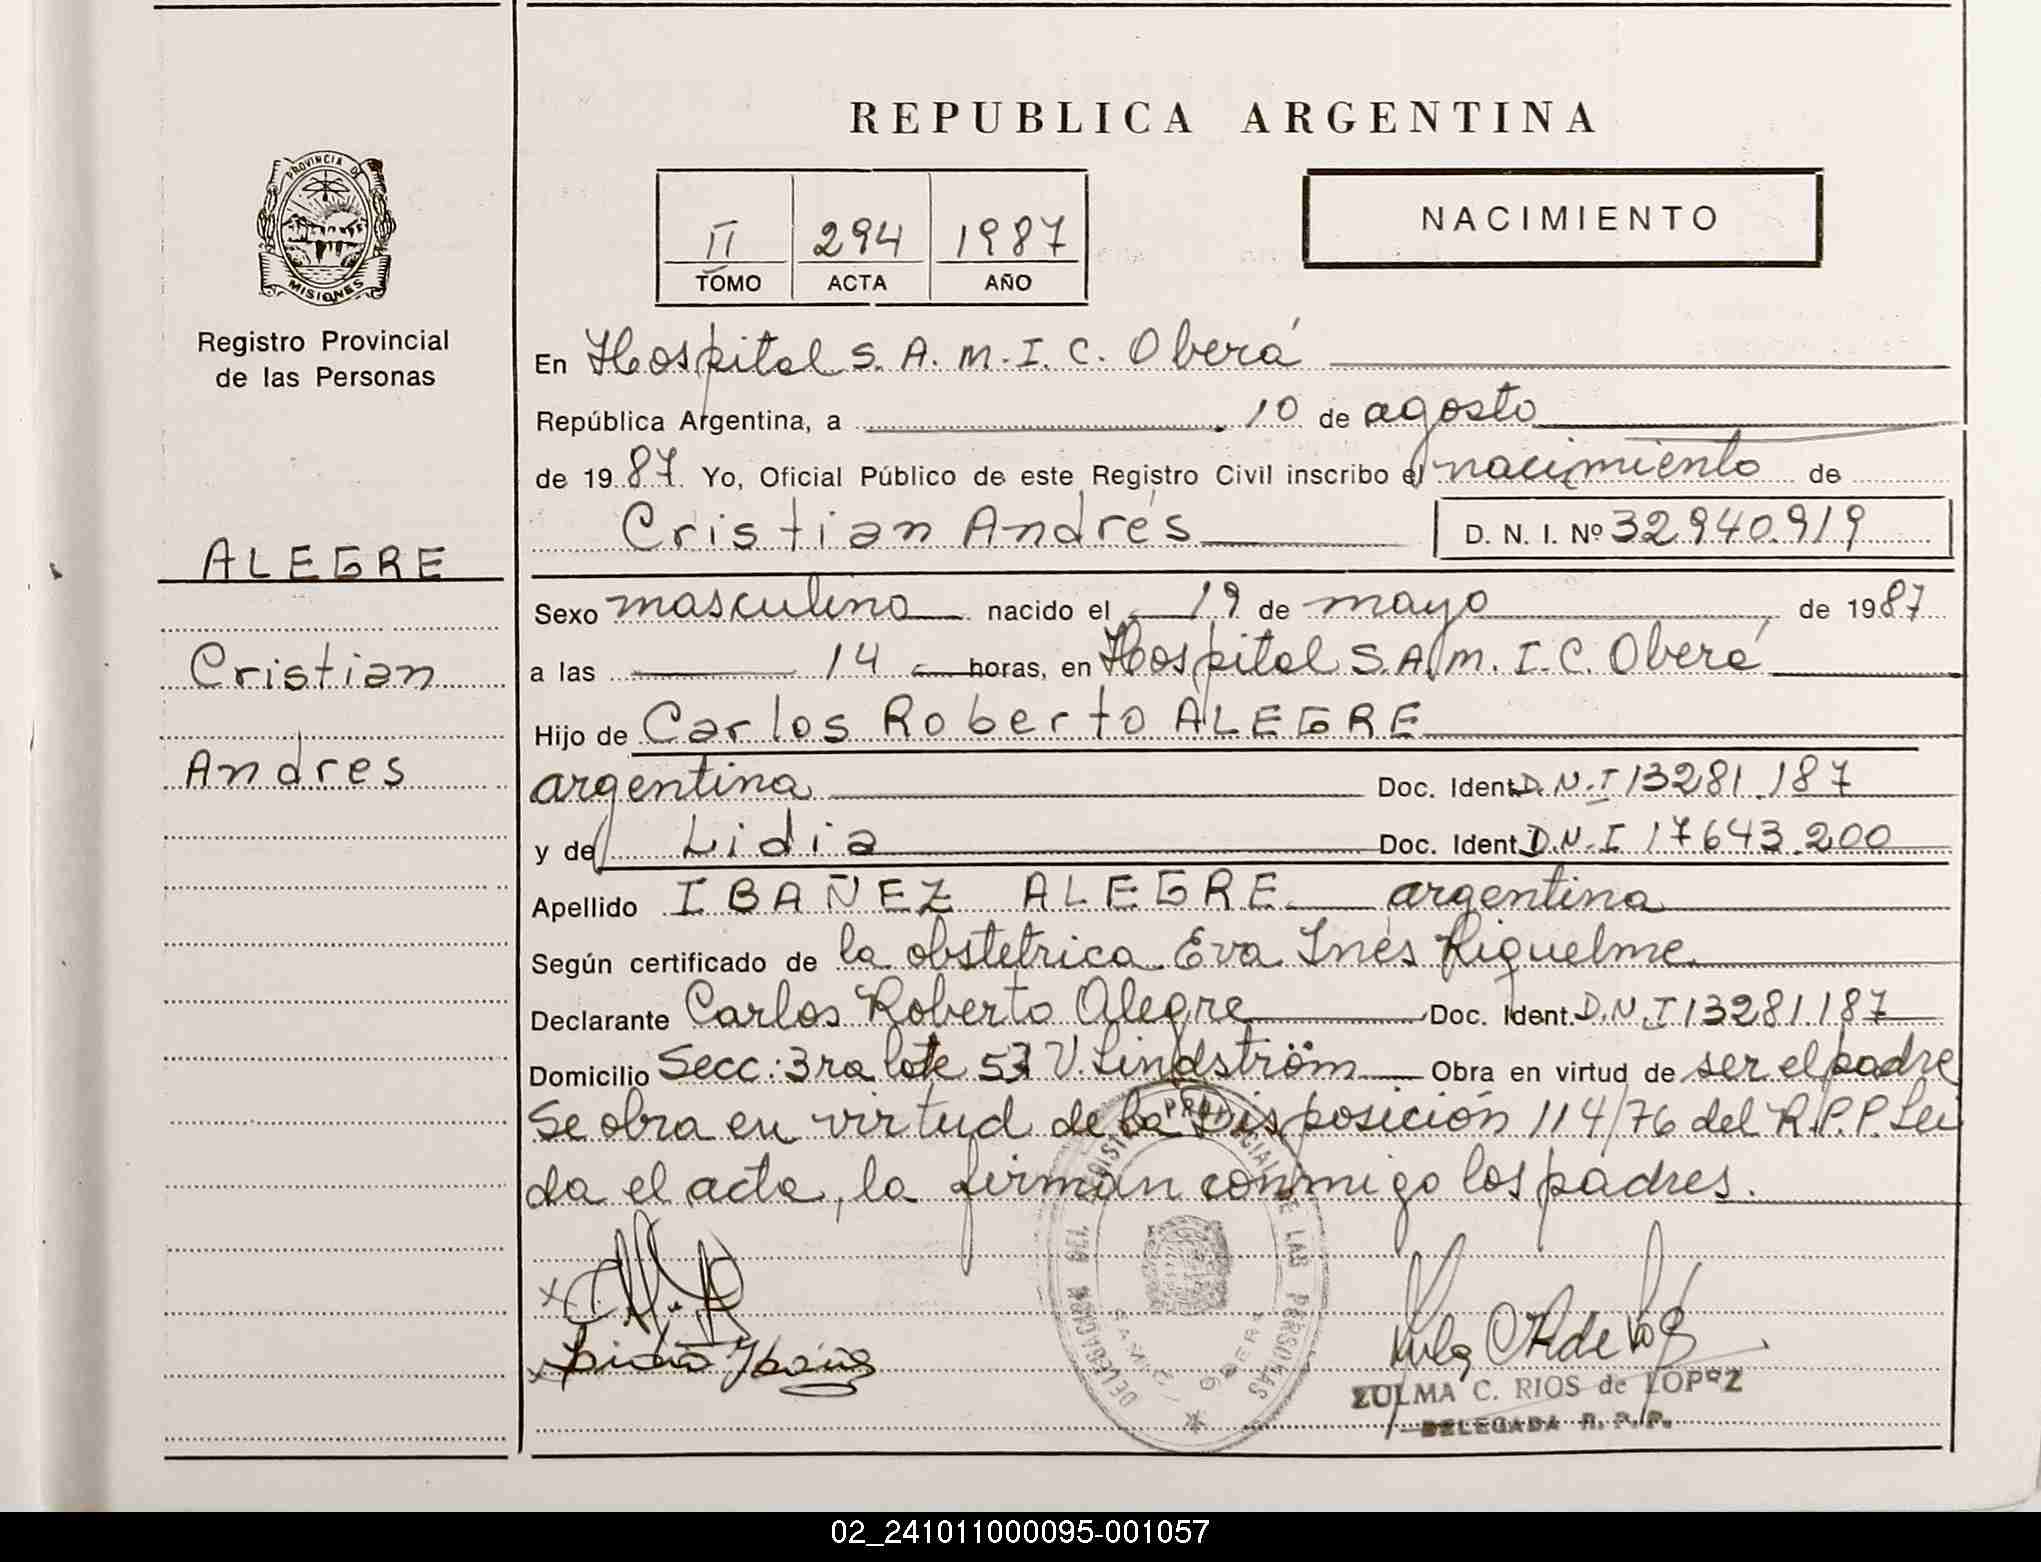 REPUBLICA ARGENTINA
PROVINCIA DE
MISIONES
Registro Provincial
de las Personas
II 294 1987
TOMO ACTA AÑO
NACIMIENTO
En Hospital S.A.M.I.C. Oberá
República Argentina, a 10 de agosto
de 1987 Yo, Oficial Público de este Registro Civil inscribo el nacimiento de
Cristian Andrés D. N. I. Nº 32940.919
ALEGRE
Cristian
Andres
Sexo masculino nacido el 19 de mayo de 1987
a las 14 horas, en Hospital S.A.M.I.C. Oberá
Hijo de Carlos Roberto ALEGRE
argentina Doc. Ident. D.N.I 13281.187
y de Lidia Doc. Ident. D.N.I 17643.200
Apellido IBAÑEZ ALEGRE argentina
Según certificado de la obstetrica Eva Inés Riquelme
Declarante Carlos Roberto Alegre Doc. Ident. D.N.I 13281.187
Domicilio Secc: 3ra lote V. Lindström Obra en virtud de ser el padre
Se obra en virtud de la Disposición 114/76 del R.P.P. Lei
da el acta, la firman conmigo los padres.
Lidia Ibañez
ZULMA C. RIOS de LOPEZ
DELEGADA R. P. P.
02_241011000095-001057